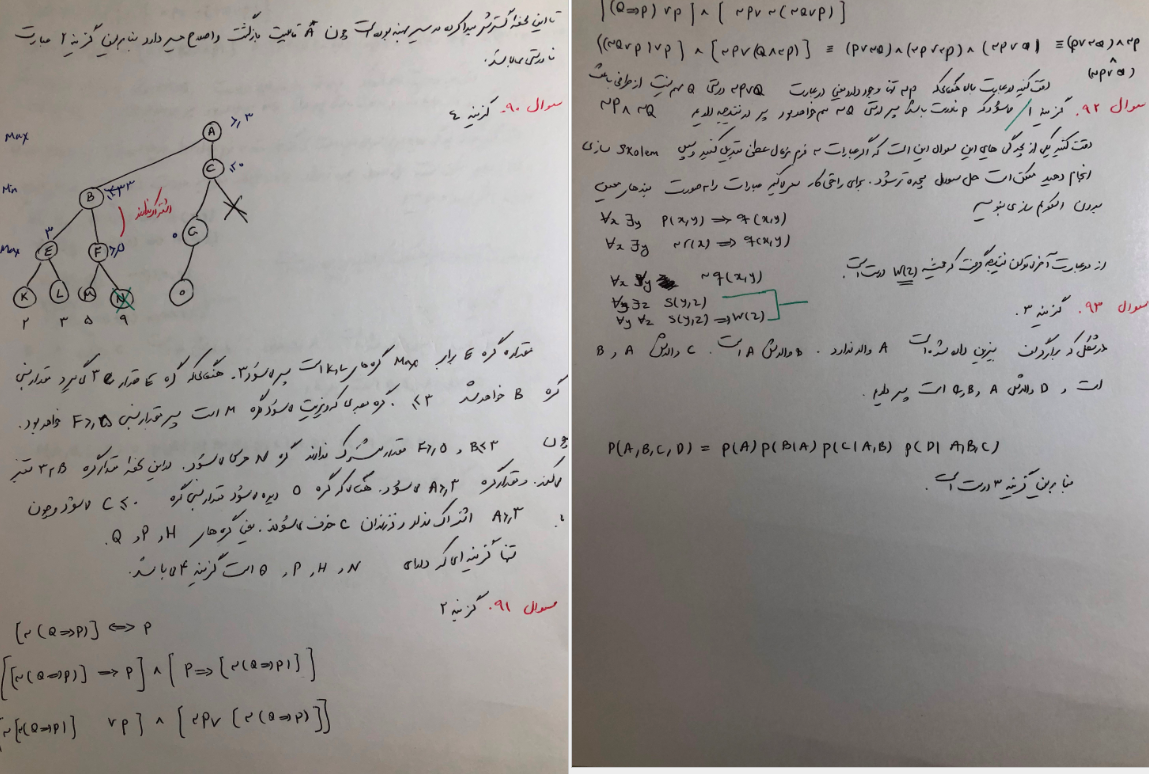 تا این لحظه گسترش پیدا کرده در مسیر بهینه بوده است چون A* قابلیت بازگشت و اصلاح مسیر دارد بنابراین گزینه ۲ عبارت
نادرستی می‌باشد.
سوال ۹۰. گزینه ۴
Max
A
≥ ۳
Min
B
C
≤ ۰
Max
۳
E
F
≥ ۵
G
۰
K
L
M
N
O
۲
۳
۵
۹
مقدار گره E برابر Max گره‌های K,L است پس می‌شود ۳. هنگامی که گره E مقدار ۳ می‌گیرد مقدار نسبی
گره B خواهد شد ≤ ۳. گره بعدی که رویت می‌شود گره M است پس مقدار نسبی F ≥ ۵ خواهد بود.
چون B ≤ ۳ و F ≥ ۵ مقدار مشترک ندارند گره N هرس می‌شود. در این لحظه مقدار گره B ۳ تغییر
می‌کند. و مقدار گره A ≥ ۳ می‌شود. هنگامی که گره O دیده می‌شود مقدار نسبی گره C ≤ ۰ می‌شود و چون
با A ≥ ۳ اشتراک ندارد فرزندان C حذف می‌شوند. یعنی گره‌های H و P و Q.
تنها گزینه‌ای که دارای N و H و P و Q است گزینه ۴ می‌باشد.
سوال ۹۱. گزینه ۲
[~(Q⇒P)] ⇔ P
[[~(Q⇒P)] ⇒ P] ∧ [P⇒[~(Q⇒P)]]
[~[~(Q⇒P)] ∨ P] ∧ [~P∨ [~(Q⇒P)]]
[(Q⇒P) ∨ P] ∧ [~P∨ ~(~Q∨P)]
[(~Q∨P)∨P] ∧ [~P∨(Q∧~P)] ≡ (P∨~Q)∧(~P∨~P)∧(~P∨Q) ≡ (P∨~Q)∧~P
∧
(~P∨Q)
دقت کنید در عبارت بالا هنگامی که ~P تنها وجود دارد یعنی در عبارت ~P∨Q درستی Q مهم نیست از طرفی باعث
سوال ۹۲. گزینه ۱ می‌شود که P نادرست باشد پس درستی ~Q هم خواهد بود پس در نتیجه داریم ~P ∧ ~Q
دقت کنید یکی از پیچیدگی‌های این سوال این است که اگر عبارات به فرم نرمال عطفی تبدیل کنید و سپس Skolem سازی
انجام دهید ممکن است حل سوال پیچیده‌تر شود. برای راحتی کار سعی کنید عبارات را به صورت بندهای معین
بدون اسکولم سازی بنویسید
∀x ∃y P(x,y) ⇒ q(x,y)
∀x ∃y ~r(x) ⇒ q(x,y)
∀x ∀y ~q(x,y)
∀y ∃z S(y,z)
∀y ∀z S(y,z) ⇒ W(z)
از دو عبارت آخر می‌توان نتیجه گرفت که همیشه W(z) درست است.
سوال ۹۳. گزینه ۳.
در شکل که بیانگر گراف بیزین داده شده است A والد ندارد. B والدش A است. C والدش A و B
است و D والدش A و B و C است پس داریم.
P(A,B,C,D) = P(A) P(B|A) P(C|A,B) P(D|A,B,C)
بنابراین گزینه ۳ درست است.